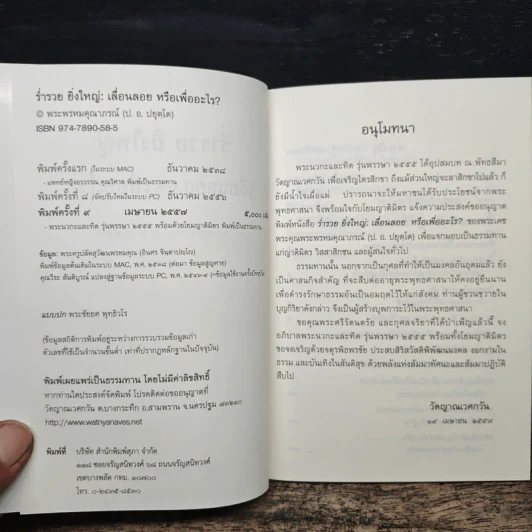 ร่ำรวย ยิ่งใหญ่: เลื่อนลอย หรือเพื่ออะไร?
© พระพรหมคุณาภรณ์ (ป. อ. ปยุตฺโต)
ISBN 974-7890-58-5
พิมพ์ครั้งแรก (ในระบบ MAC) ธันวาคม ๒๕๓๘
- แพทย์หญิงอรวรรณ คุณวิศาล พิมพ์เป็นธรรมทาน
พิมพ์ครั้งที่ ๘ (จัดปรับใหม่ในระบบ PC) ธันวาคม ๒๕๕๖
พิมพ์ครั้งที่ ๙ เมษายน ๒๕๕๗ ๕,๐๐๐
- พระนวกะและทิด รุ่นพรรษา ๒๕๕๕ พร้อมด้วยโยมญาติมิตร พิมพ์เป็นธรรมทาน
ข้อมูล: พระครูปลัดสุวัฒนพรหมคุณ (อินศร จินฺตาปญฺโญ)
พิมพ์ข้อมูลต้นเดิมในระบบ MAC, พ.ศ. ๒๕๓๘ (ต่อมา ข้อมูลสูญหาย)
คุณวีระ สันติบูรณ์ แปลงสู่ฐานข้อมูลระบบ PC, พ.ศ.
แบบปก พระชัยยศ พุทฺธิวโร
(ข้อมูลสถิติการพิมพ์อยู่ระหว่างการรวบรวมข้อมูลเก่า
ตัวเลขที่ใช้เป็นจำนวนขั้นต่ำ เท่าที่ปรากฏหลักฐานในปัจจุบัน)
พิมพ์เผยแพร่เป็นธรรมทาน โดยไม่มีค่าลิขสิทธิ์
หากท่านใดประสงค์จัดพิมพ์ โปรดติดต่อขออนุญาตที่
วัดญาณเวศกวัน ต.บางกระทึก อ.สามพราน จ.นครปฐม ๗๓๒๑๐
http://www.watnyanaves.net
พิมพ์ที่ บริษัท สำนักพิมพ์สุภา จำกัด
๑๑๘ ซอยจรัญสนิทวงศ์ ๖๘ ถนนจรัญสนิทวงศ์
เขตบางพลัด กทม. ๑๐๗๐๐
โทร. ๐-๒๔๓๕-๘๕๓๐
อนุโมทนา
พระนวกะและทิด รุ่นพรรษา ๒๕๕๕ ได้อุปสมบท ณ พัทธสีมา
วัดญาณเวศกวัน เพื่อเจริญไตรสิกขา ถึงแม้ส่วนใหญ่จะลาสิกขาไปแล้ว ก็
ยังมีน้ำใจเผื่อแผ่ ปรารถนาจะให้มหาชนได้รับประโยชน์จากพระ
พุทธศาสนา จึงพร้อมใจกับโยมญาติมิตร แจ้งความประสงค์ขออนุญาต
พิมพ์หนังสือ ร่ำรวย ยิ่งใหญ่: เลื่อนลอย หรือเพื่ออะไร? ของพระเดช
พระคุณพระพรหมคุณาภรณ์ (ป. อ. ปยุตฺโต) เพื่อแจกมอบเป็นธรรมทาน
แก่ญาติมิตร วิสสาสิกชน และผู้สนใจทั่วไป
ธรรมทานนั้น นอกจากเป็นกุศลที่ทำให้เป็นมงคลอันอุดมแล้ว ยัง
เป็นศาสนกิจสำคัญ ที่จะสืบต่ออายุพระพุทธศาสนาให้คงอยู่ยืนนาน
เพื่อดำรงรักษาธรรมอันเป็นอมฤตไว้ให้แก่สังคม ท่านผู้ชวนขวายใน
บุญกิริยาดังกล่าว จึงเป็นผู้สร้างบุพการะไว้ในพระพุทธศาสนา
ขอคุณพระศรีรัตนตรัย และกุศลจริยาที่ได้บำเพ็ญแล้วนี้ จง
อภิบาลพระนวกะและทิด รุ่นพรรษา ๒๕๕๕ พร้อมทั้งโยมญาติมิตร
ขอจงเจริญด้วยจตุรพิธพรชัย ประสบสิริสวัสดิพิพัฒนมงคล งอกงามใน
ธรรม และบันเทิงในสันติสุข ด้วยพลังแห่งสัมมาทัศนะและสัมมาปฏิบัติ
สืบไป
วัดญาณเวศกวัน
เมษายน ๒๕๕๗